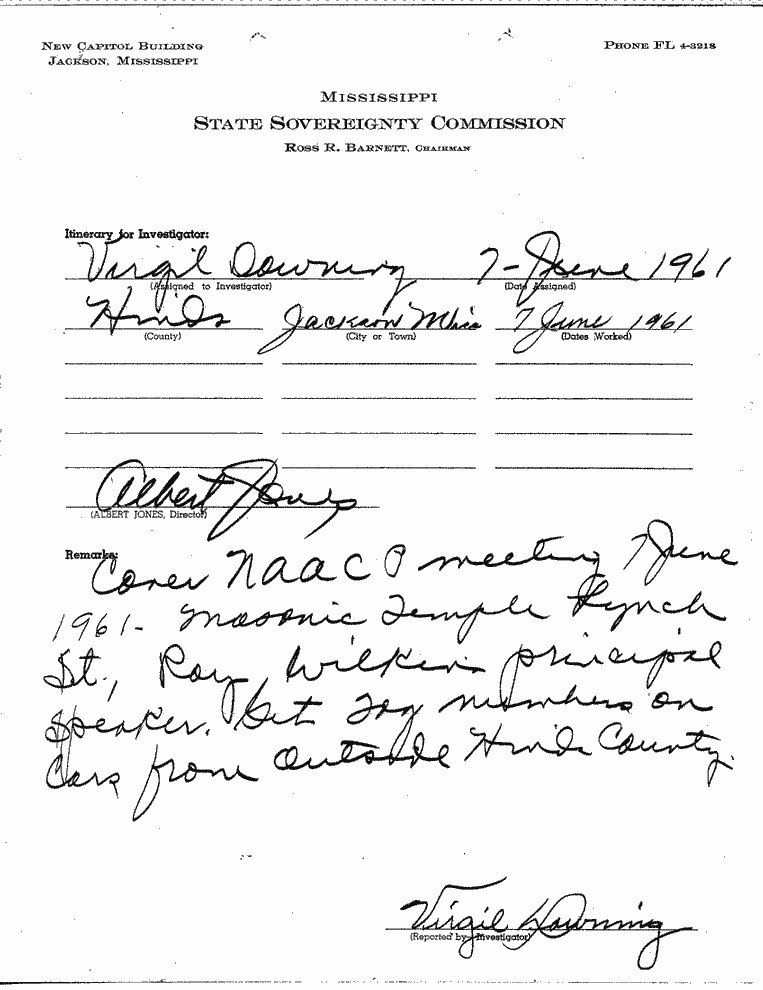 NEW CAPITOL BUILDING
JACKSON, MISSISSIPPI
PHONE FL 4-3218
MISSISSIPPI
STATE SOVEREIGNTY COMMISSION
ROSS R. BARNETT, CHAIRMAN
Itinerary for Investigator:
Virgil Downing 7-June 1961
(Assigned to Investigator) (Date Assigned)
Hinds Jackson Miss 7 June 1961
(County) (City or Town) (Dates Worked)
Albert Jones
(ALBERT JONES, Director)
Remarks:
Cover NAACP meeting 7 June
1961- Masonic Temple Lynch
St., Roy Wilkins principal
speaker. Get Tag numbers on
Cars from Outside Hinds County.
Virgil Downing
(Reported by Investigator)